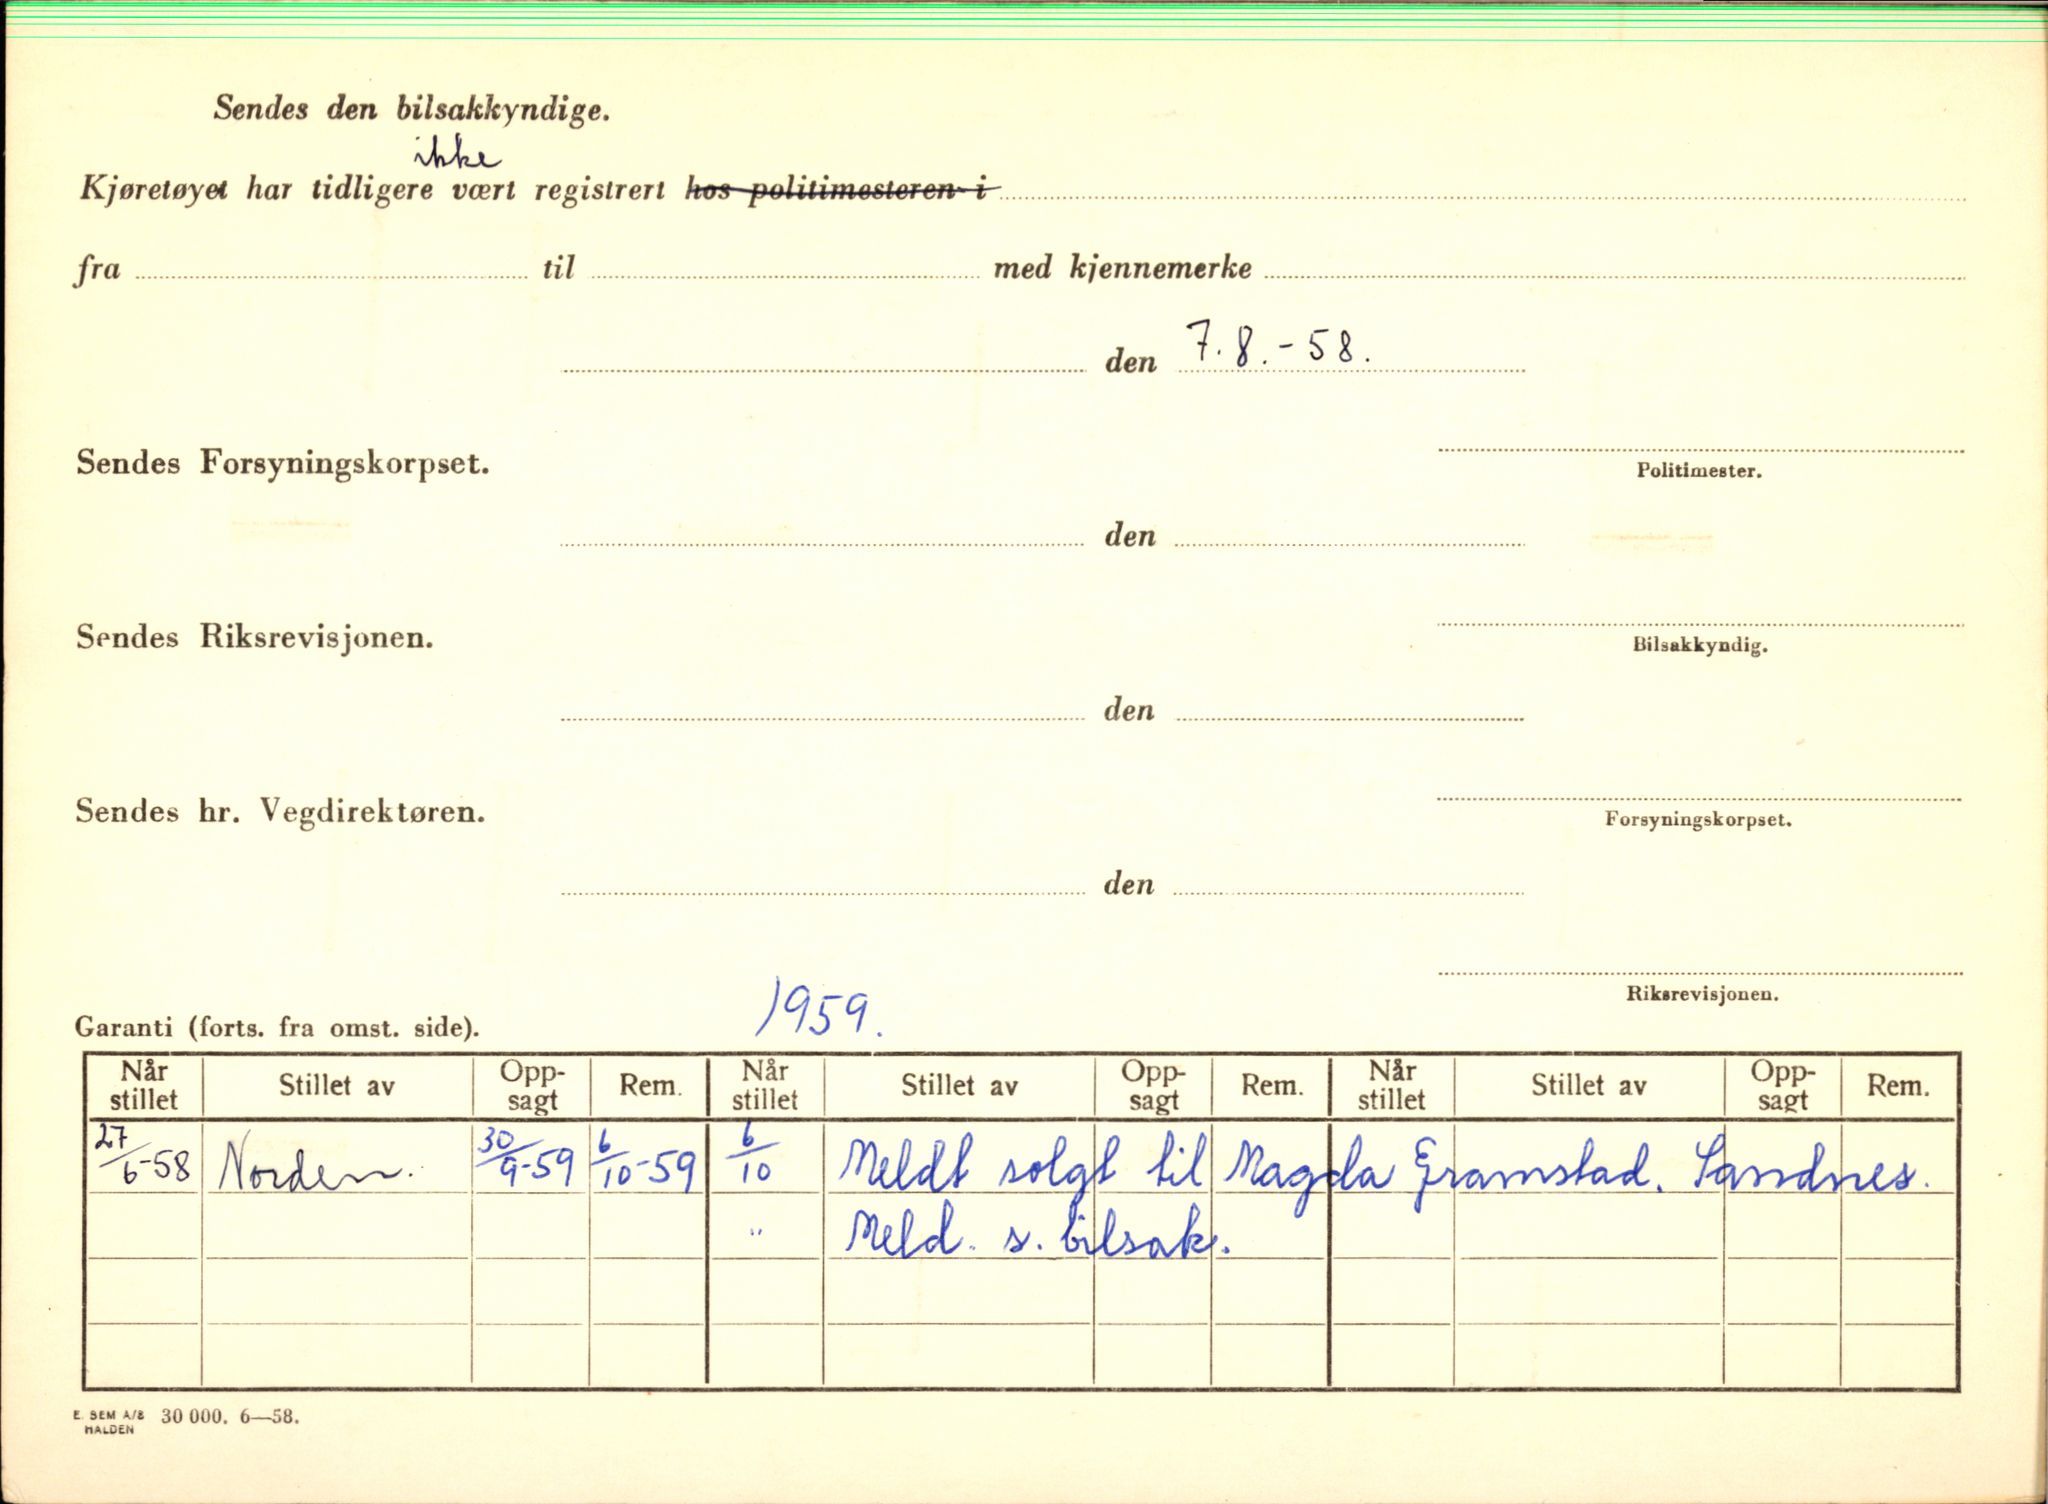 Sendes den bilsakkyndige.
ikke
Kjøretøyet har tidligere vært registrert hos politimesteren i
fra til med kjennemerke
den 7.8.-58.
Sendes Forsyningskorpset.
Politimester.
den
Sendes Riksrevisjonen.
Bilsakkyndig.
den
Sendes hr. Vegdirektøren.
Forsyningskorpset.
den
Riksrevisjonen.
1959.
Garanti (forts. fra omst. side).
Når stillet Stillet av Opp-sagt Rem. Når stillet Stillet av Opp-sagt Rem. Når stillet Stillet av Opp-sagt Rem.
27/6-58 Norden. 30/9-59 6/10-59 6/10 Meldt solgt til Magda Gramstad. Sandnes.
" Meld. s. bilsak.
E. SEM A/S HALDEN 30 000. 6—58.